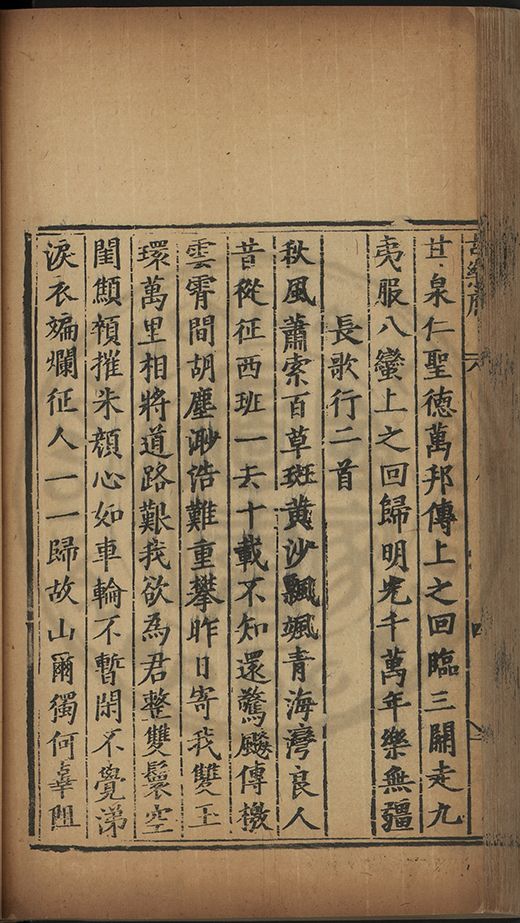 甘泉仁聖徳萬邦傳上之回臨三關走九
夷服八蠻上之回歸明光千萬年樂無疆
長歌行二首
秋風蕭索百草斑黄沙飄颯青海灣良人
昔從征西班一去十載不知還驚飈傳檄
雲霄間胡塵浩難重攀昨日寄我雙玉
環萬里相將道路艱我欲為君整雙鬟空
閨顦顇摧朱顔心如車輪不暫閑不覺涕
淚衣斒斕征人一一歸故山爾獨何辜阻